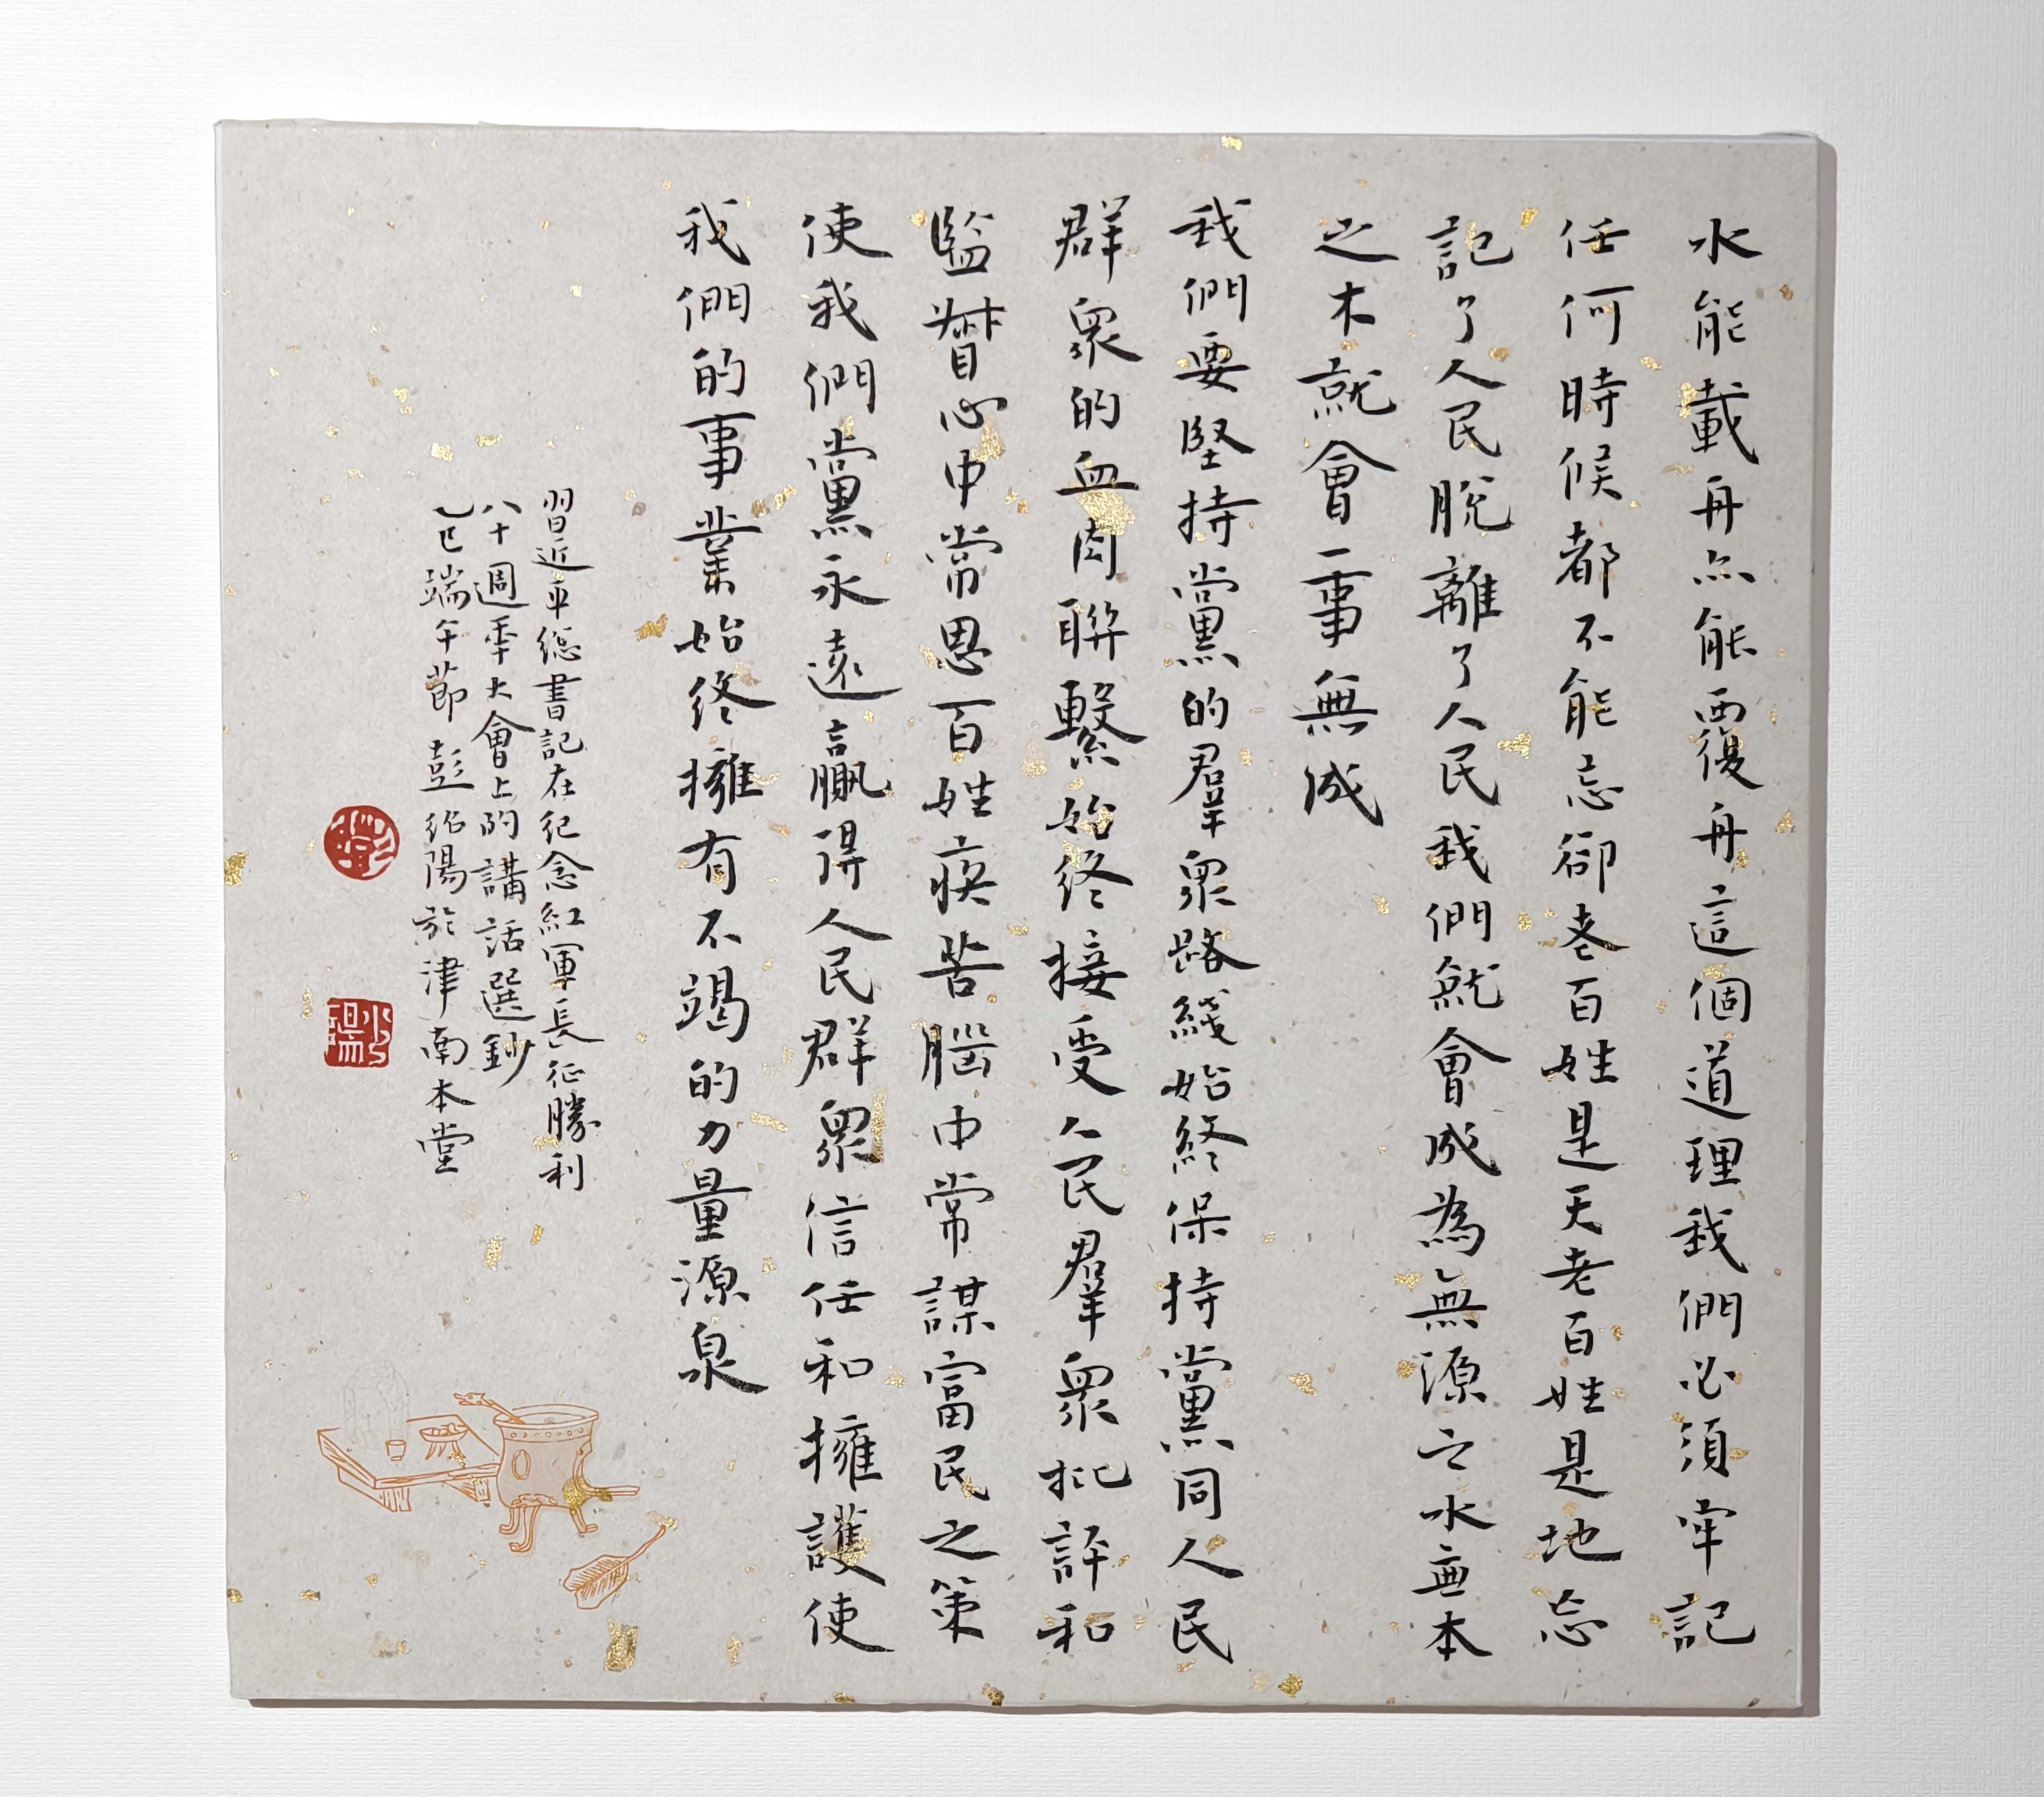 水能載舟亦能覆舟這個道理我們必須牢記
任何時候都不能忘卻老百姓是天老百姓是地忘
記了人民脫離了人民我們就會成為無源之水無本
之木就會一事無成
我們要堅持黨的羣眾路綫始終保持黨同人民
群眾的血肉聯繫始終接受人民羣眾批評和
監督心中常思百姓疾苦腦中常謀富民之策
使我們黨永遠贏得人民群眾信任和擁護使
我們的事業始終擁有不竭的力量源泉
習近平總書記在紀念紅軍長征勝利
八十週年大會上的講話選鈔
乙巳端午節彭紹陽於津南本堂